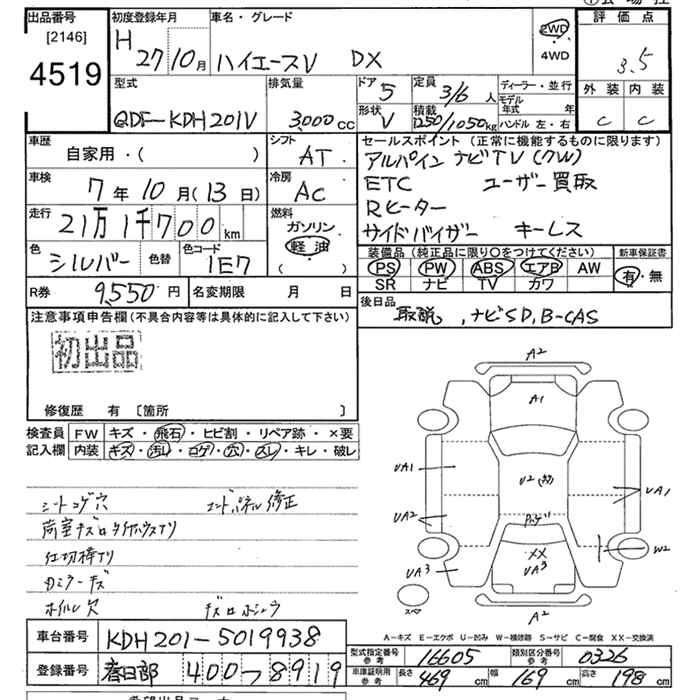 出品番号 初度登録年月 車名・グレード 評価点
[2146]
4519
H 27 10月 ハイエースV DX 2WD ・ 4WD 3.5
型式 排気量 ドア 5 定員 3/6 人 ディーラー・並行 外装 内装
QDF-KDH201V 3,000 cc 形状 V 積載 1250/1050kg モデル年式 年 C C
ハンドル 左・右
車歴 シフト セールスポイント (正常に機能するものに限ります)
自家用・( ) AT アルパイン ナビTV(7W)
車検 冷房 ETC ユーザー買取
7年10月(13日) AC Rヒーター
走行 燃料 サイドバイザー キーレス
21万1千700km ガソリン
軽油
( )
色 シルバー 色替 色コード 1E7
装備品 (純正品に限り○をつけてください) 新車保証書
PS PW ABS エアB AW 有・無
SR ナビ TV カワ
R券 9,550円 名変期限 月 日
後日品
取説, ナビSD, B-CAS
注意事項申告欄(不具合内容等は具体的に記入して下さい)
初出品
修復歴 有 〔箇所 〕
検査員 FW キズ・飛石・ヒビ割・リペア跡・×要
記入欄 内装 キズ・汚レ・コゲ・穴・スレ・キレ・破レ
シートコゲ穴 エンドパネル修正
荷室キズ
仕切棒
ホイル欠
A2
A1
UA1
U2
UA1
UA2
XX
W2
UA3
UA3
スペ
A2
A-キズ E-エクボ U-凹み W-補修跡 S-サビ C-腐食 XX-交換済
車台番号 KDH201-5019938
型式指定番号 参考 16605 類別区分番号 参考 0326
登録番号 春日部 400 つ 8919
車庫証明用 参考 長さ 469cm 幅 169cm 高さ 198cm